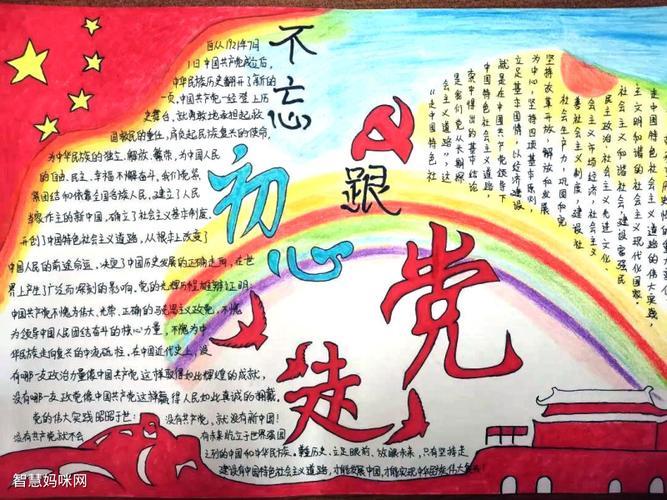 不忘
初心
跟
党
走
自从1921年7月
1日中国共产党成立后，
中华民族历史翻开了新的
一页，中国共产党一经登上历
史舞台，就勇敢地承担起救
国救民的重任，肩负起民族复兴的使命，
为中华民族的独立、解放、繁荣，为中国人民
的自由、民主、幸福不懈奋斗，我们党紧
紧团结和依靠全国各族人民，建立了人民
当家作主的新中国，确立了社会主义基本制度，
开创了中国特色社会主义道路，从根本上改变了
中国人民的前途命运，决定了中国历史发展的正确走向，在世
界上产生了广泛而深刻的影响，党的光辉历程雄辩证明：
中国共产党不愧为伟大、光荣、正确的马克思主义政党，不愧
为领导中国人民团结奋斗的核心力量，不愧为中
华民族走向复兴的中流砥柱，在中国近代史上，没
有哪一支政治力量像中国共产党这样取得如此辉煌的成就，
没有哪一支政党像中国共产党这样赢得人民如此真诚的拥戴，
党的伟大实践昭昭于世：
没有共产党，就没有新中国！
没有共产党就不会
有未来屹立于世界强国
之列的中国和中华民族。
历史，立足眼前，放眼未来，只有坚持走
建设有中国特色社会主义道路，才能发展中国，才能实现中华民族伟大
走中国特色社会
主义道路
就是在中国共产党领导下
立足基本国情，以经济建设
为中心，坚持四项基本原则
坚持改革开放，解放和发展
社会生产力，巩固和完
善社会主义制度，建设社
会主义市场经济、社会主义
民主政治、社会主义先进文化、
社会主义和谐社会，建设富强民
主文明和谐的社会主义现代化国家。
智慧妈咪网